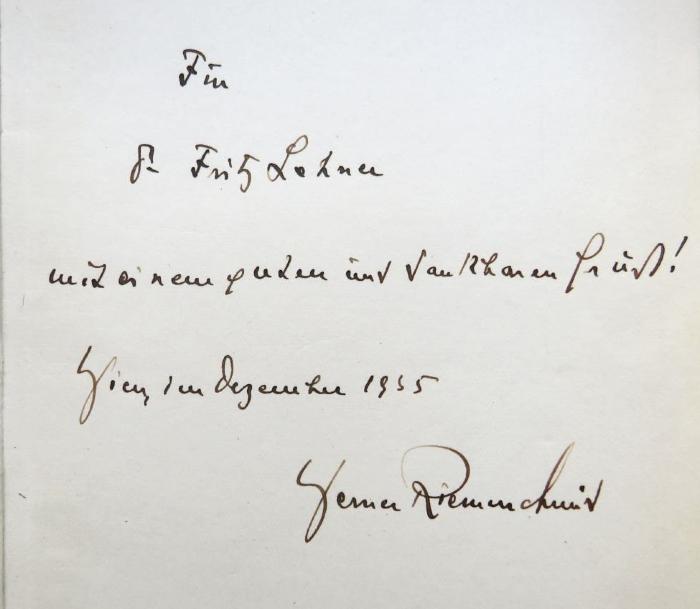 Für
Dr Fritz Lehner
mit einem guten und dankbaren Gruß!
Wien, im Dezember 1955
Werner Riemerschmid